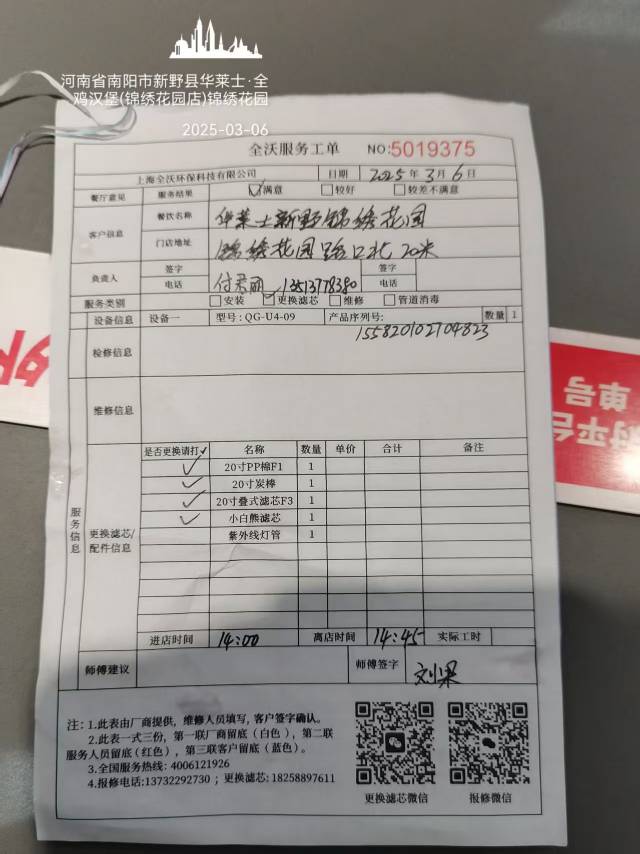 河南省南阳市新野县华莱士·全
鸡汉堡(锦绣花园店)锦绣花园
2025-03-06
全沃服务工单 NO:5019375
上海全沃环保科技有限公司 日期 2025年3月6日
餐厅意见 服务结果 ☑满意 □较好 □较差不满意
客户信息 餐饮名称 华莱士新野锦绣花园
门店地址 锦绣花园路口北20米
负责人 签字 签字
电话 13513778380 电话
服务类别 □安装 ☑更换滤芯 □维修 □管道消毒
设备信息 设备一 型号:QG-U4-09 产品序列号: 数量 1
155820102704823
检修信息
维修信息
服务信息
更换滤芯/配件信息
是否更换请打✓ 名称 数量 单价 合计 备注
✓ 20寸PP棉F1 1
✓ 20寸炭棒 1
✓ 20寸叠式滤芯F3 1
✓ 小白熊滤芯 1
紫外线灯管 1
进店时间 14:00 离店时间 14:45 实际工时
师傅建议 师傅签字 刘果
注:1.此表由厂商提供，维修人员填写，客户签字确认。
2.此表一式三份，第一联厂商留底（白色），第二联
服务人员留底(红色），第三联客户留底（蓝色）。
3.全国服务热线: 4006121926
4.报修电话:13732292730 ; 更换滤芯: 18258897611
更换滤芯微信 报修微信